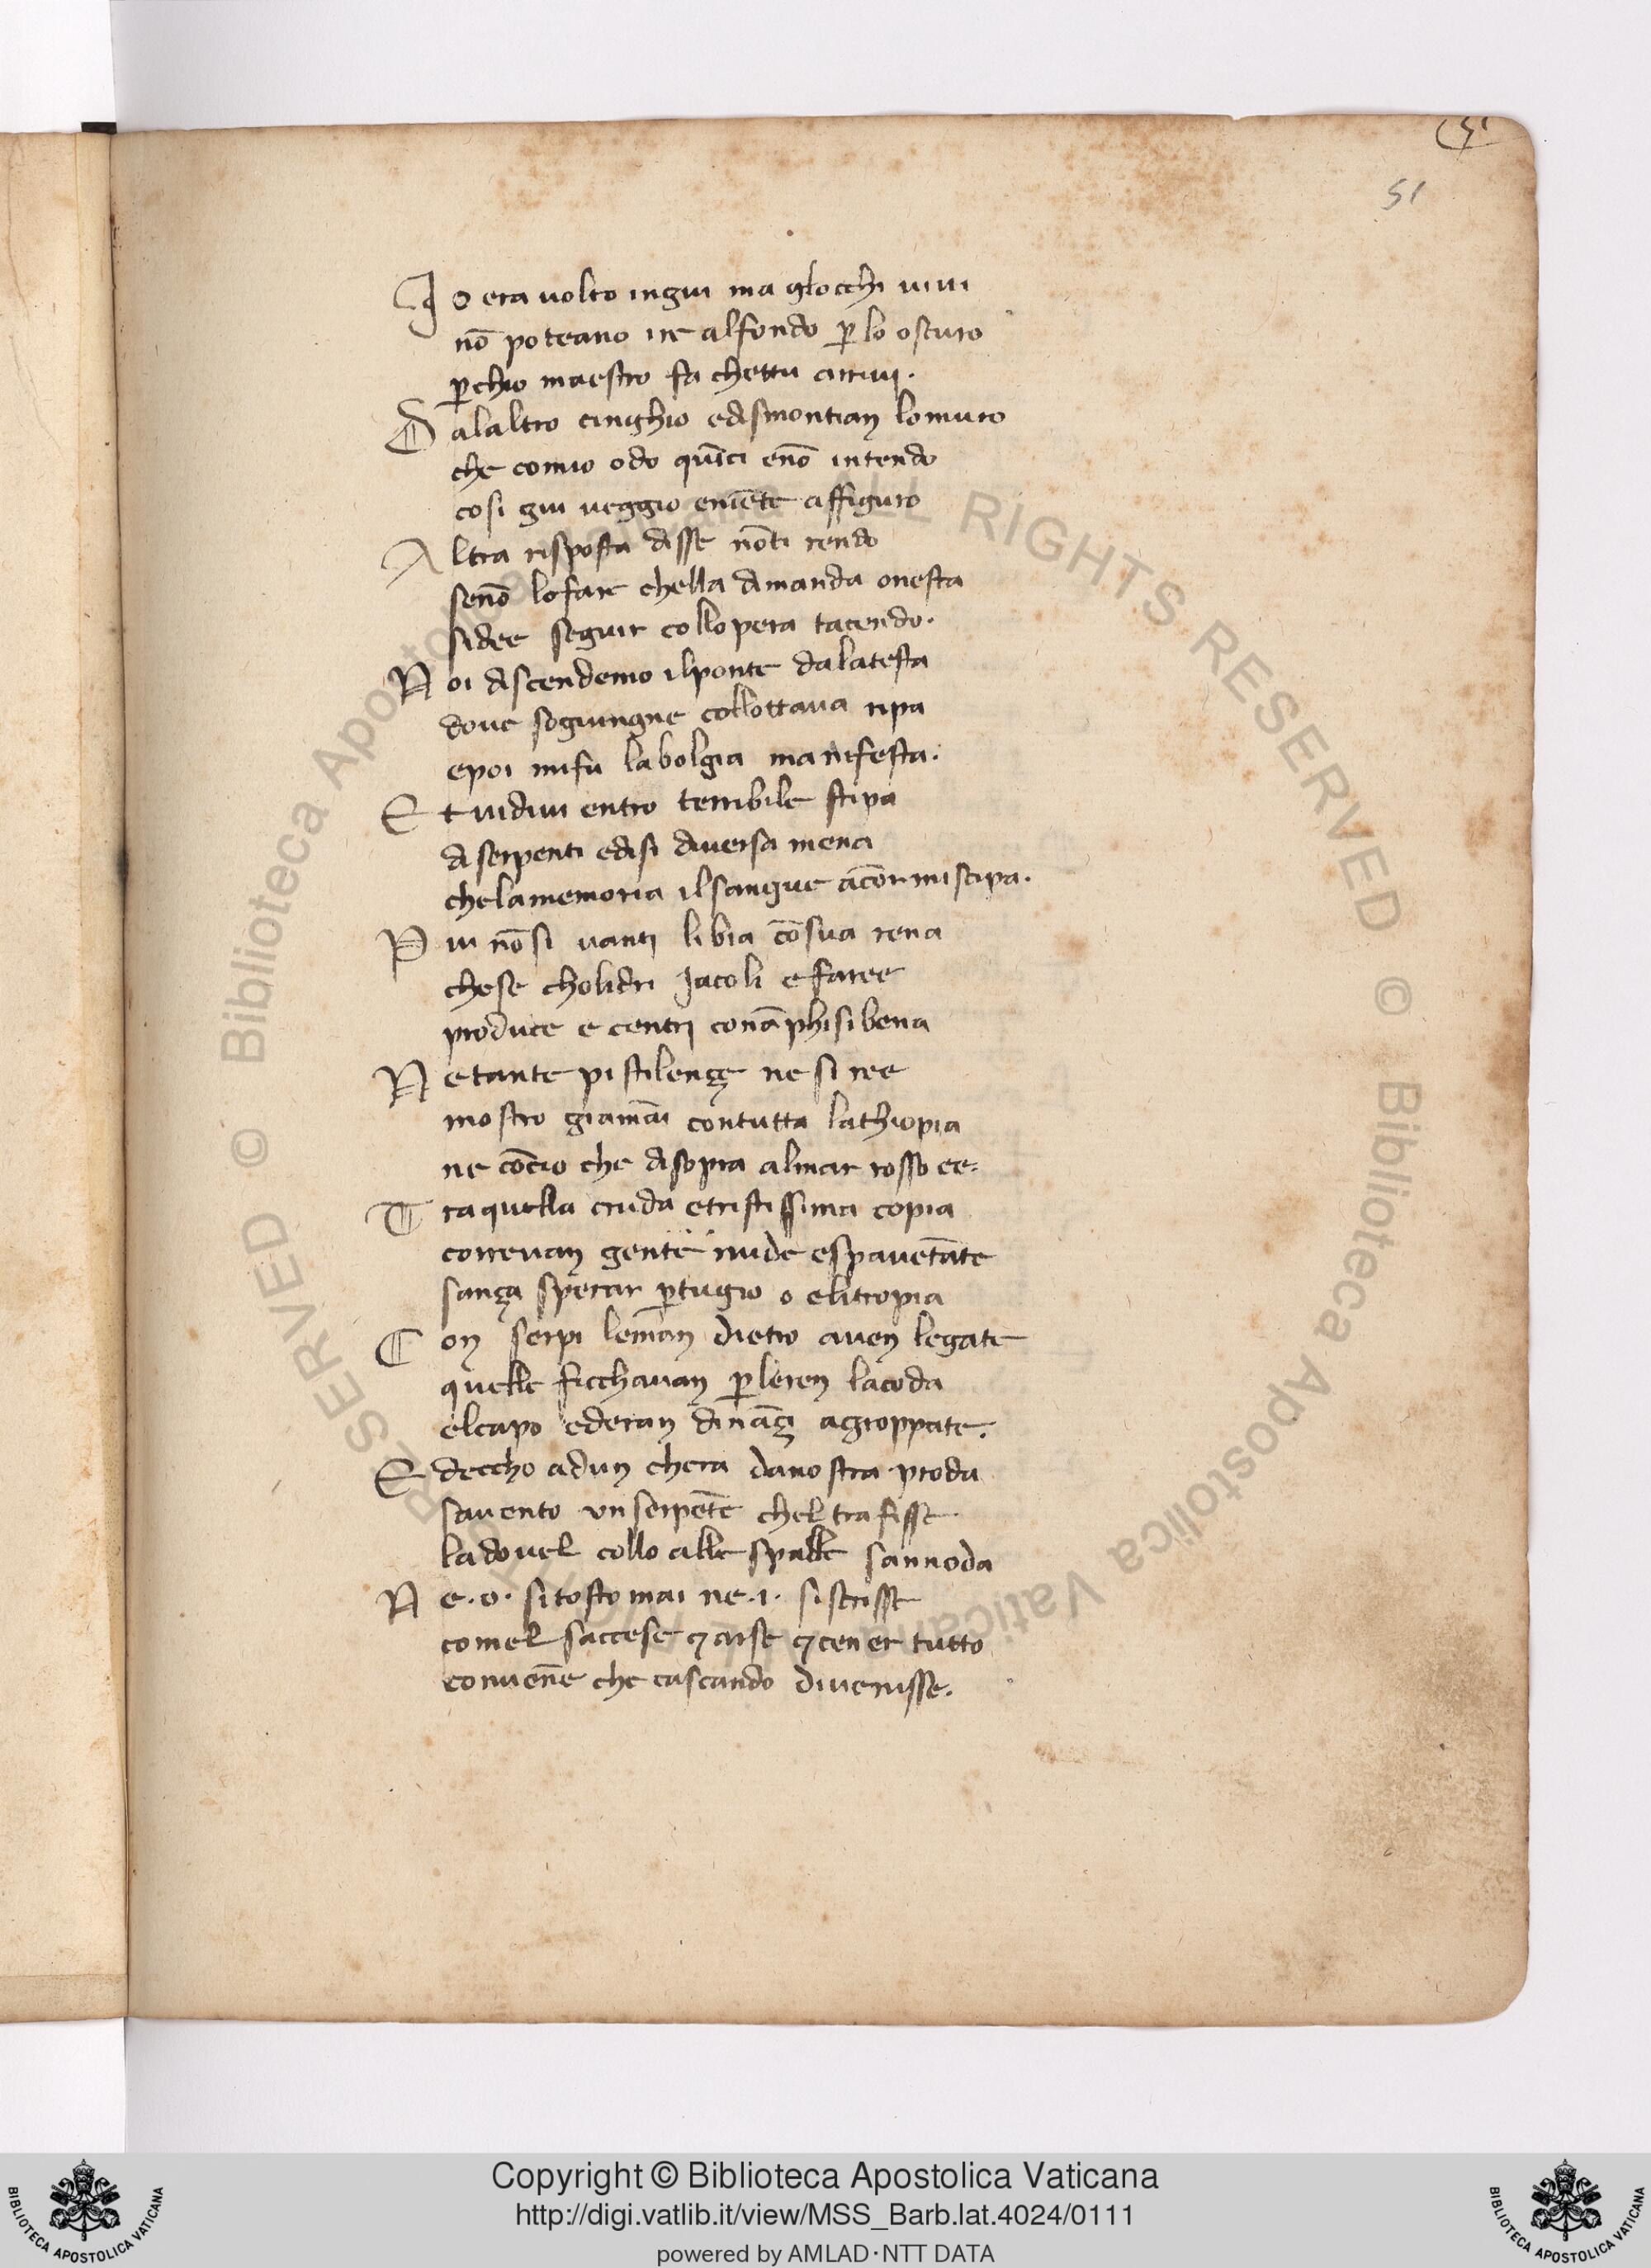 51
51
Io era uolto ingiu ma glocchi uiui
nō poteano ire alfondo ꝑ lo oscuro
ꝑchio maestro fa chettu arriuj.
Dalaltro cinghio edismontiaɳ lomuro
che comio odo quīci enō intendo
cosi giu ueggio eniēte affiguro
Altra risposta disse nōti rendo
senō lofare chella dimanda onesta
sidee seguir collopera tacendo.
Noi discendemo ilponte dalatesta
doue sogiungne collottaua ripa
epoi mifu labolgia manifesta.
Et uidiui entro terribile stipa
di serpenti edisi diuersa mena
chelamemoria ilsangue ācor miscipa.
Piu nōsi uantj libia cōsua rena
chese cholidri Jacoli efaree
produce e centrj conāphisibena
Netante pistilençe ne si ree
mostro giamai contutta lathiopia
ne cōcio che disopra almar rosso ee.
Traquella cruda etristissima copia
correuaɳ gente nude espauētate
sança sperar ꝑtugio o elitropia
Coɳ serpi lemāɳ dietro aueɳ legate
quelle ficchauaɳ ꝑlereɳ lacoda
elcapo ederaɳ dināçi agroppate.
Edeccho aduɳ chera danostra proda
sauento vn serpēte chel trafisse
ladouel collo alle spalle sannoda
Ne .o. sitosto mai ne .i. siscrisse
comel saccese ⁊ arse ⁊ cener tutto
conuēne che cascando diuenisse.
© Biblioteca Apostolica Vaticana ALL RIGHTS RESERVED © Biblioteca Apostolica Vaticana ALL RIGHTS RESERVED
Copyright © Biblioteca Apostolica Vaticana
http://digi.vatlib.it/view/MSS_Barb.lat.4024/0111
powered by AMLAD·NTT DATA
BIBLIOTECA APOSTOLICA VATICANA
BIBLIOTECA APOSTOLICA VATICANA